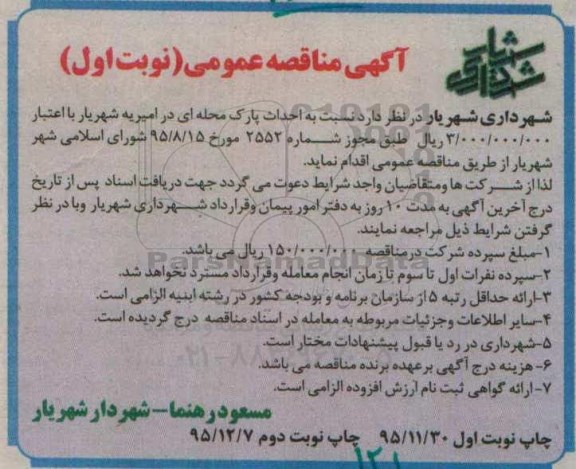 شهرداری شهریار
آگهی مناقصه عمومی (نوبت اول)
شهرداری شهریار در نظر دارد نسبت به احداث پارک محله ای در امیریه شهریار با اعتبار
۳/۰۰۰/۰۰۰/۰۰۰ ریال طبق مجوز شماره ۲۵۵۲ مورخ ۹۵/۸/۱۵ شورای اسلامی شهر
شهریار از طریق مناقصه عمومی اقدام نماید.
لذا از شرکت ها ومتقاضیان واجد شرایط دعوت می گردد جهت دریافت اسناد پس از تاریخ
درج آخرین آگهی به مدت ۱۰ روز به دفتر امور پیمان وقرارداد شهرداری شهریار وبا در نظر
گرفتن شرایط ذیل مراجعه نمایند.
۱-مبلغ سپرده شرکت درمناقصه ۱۵۰/۰۰۰/۰۰۰ ریال می باشد.
۲-سپرده نفرات اول تا سوم تا زمان انجام معامله وقرارداد مسترد نخواهد شد.
۳-ارائه حداقل رتبه ۵ از سازمان برنامه و بودجه کشور در رشته ابنیه الزامی است.
۴-سایر اطلاعات وجزئیات مربوطه به معامله در اسناد مناقصه درج گردیده است.
۵-شهرداری در رد یا قبول پیشنهادات مختار است.
۶-هزینه درج آگهی برعهده برنده مناقصه می باشد.
۷-ارائه گواهی ثبت نام ارزش افزوده الزامی است.
مسعود رهنما-شهردار شهریار
چاپ نوبت اول ۹۵/۱۱/۳۰ چاپ نوبت دوم ۹۵/۱۲/۷
ParsNamadData